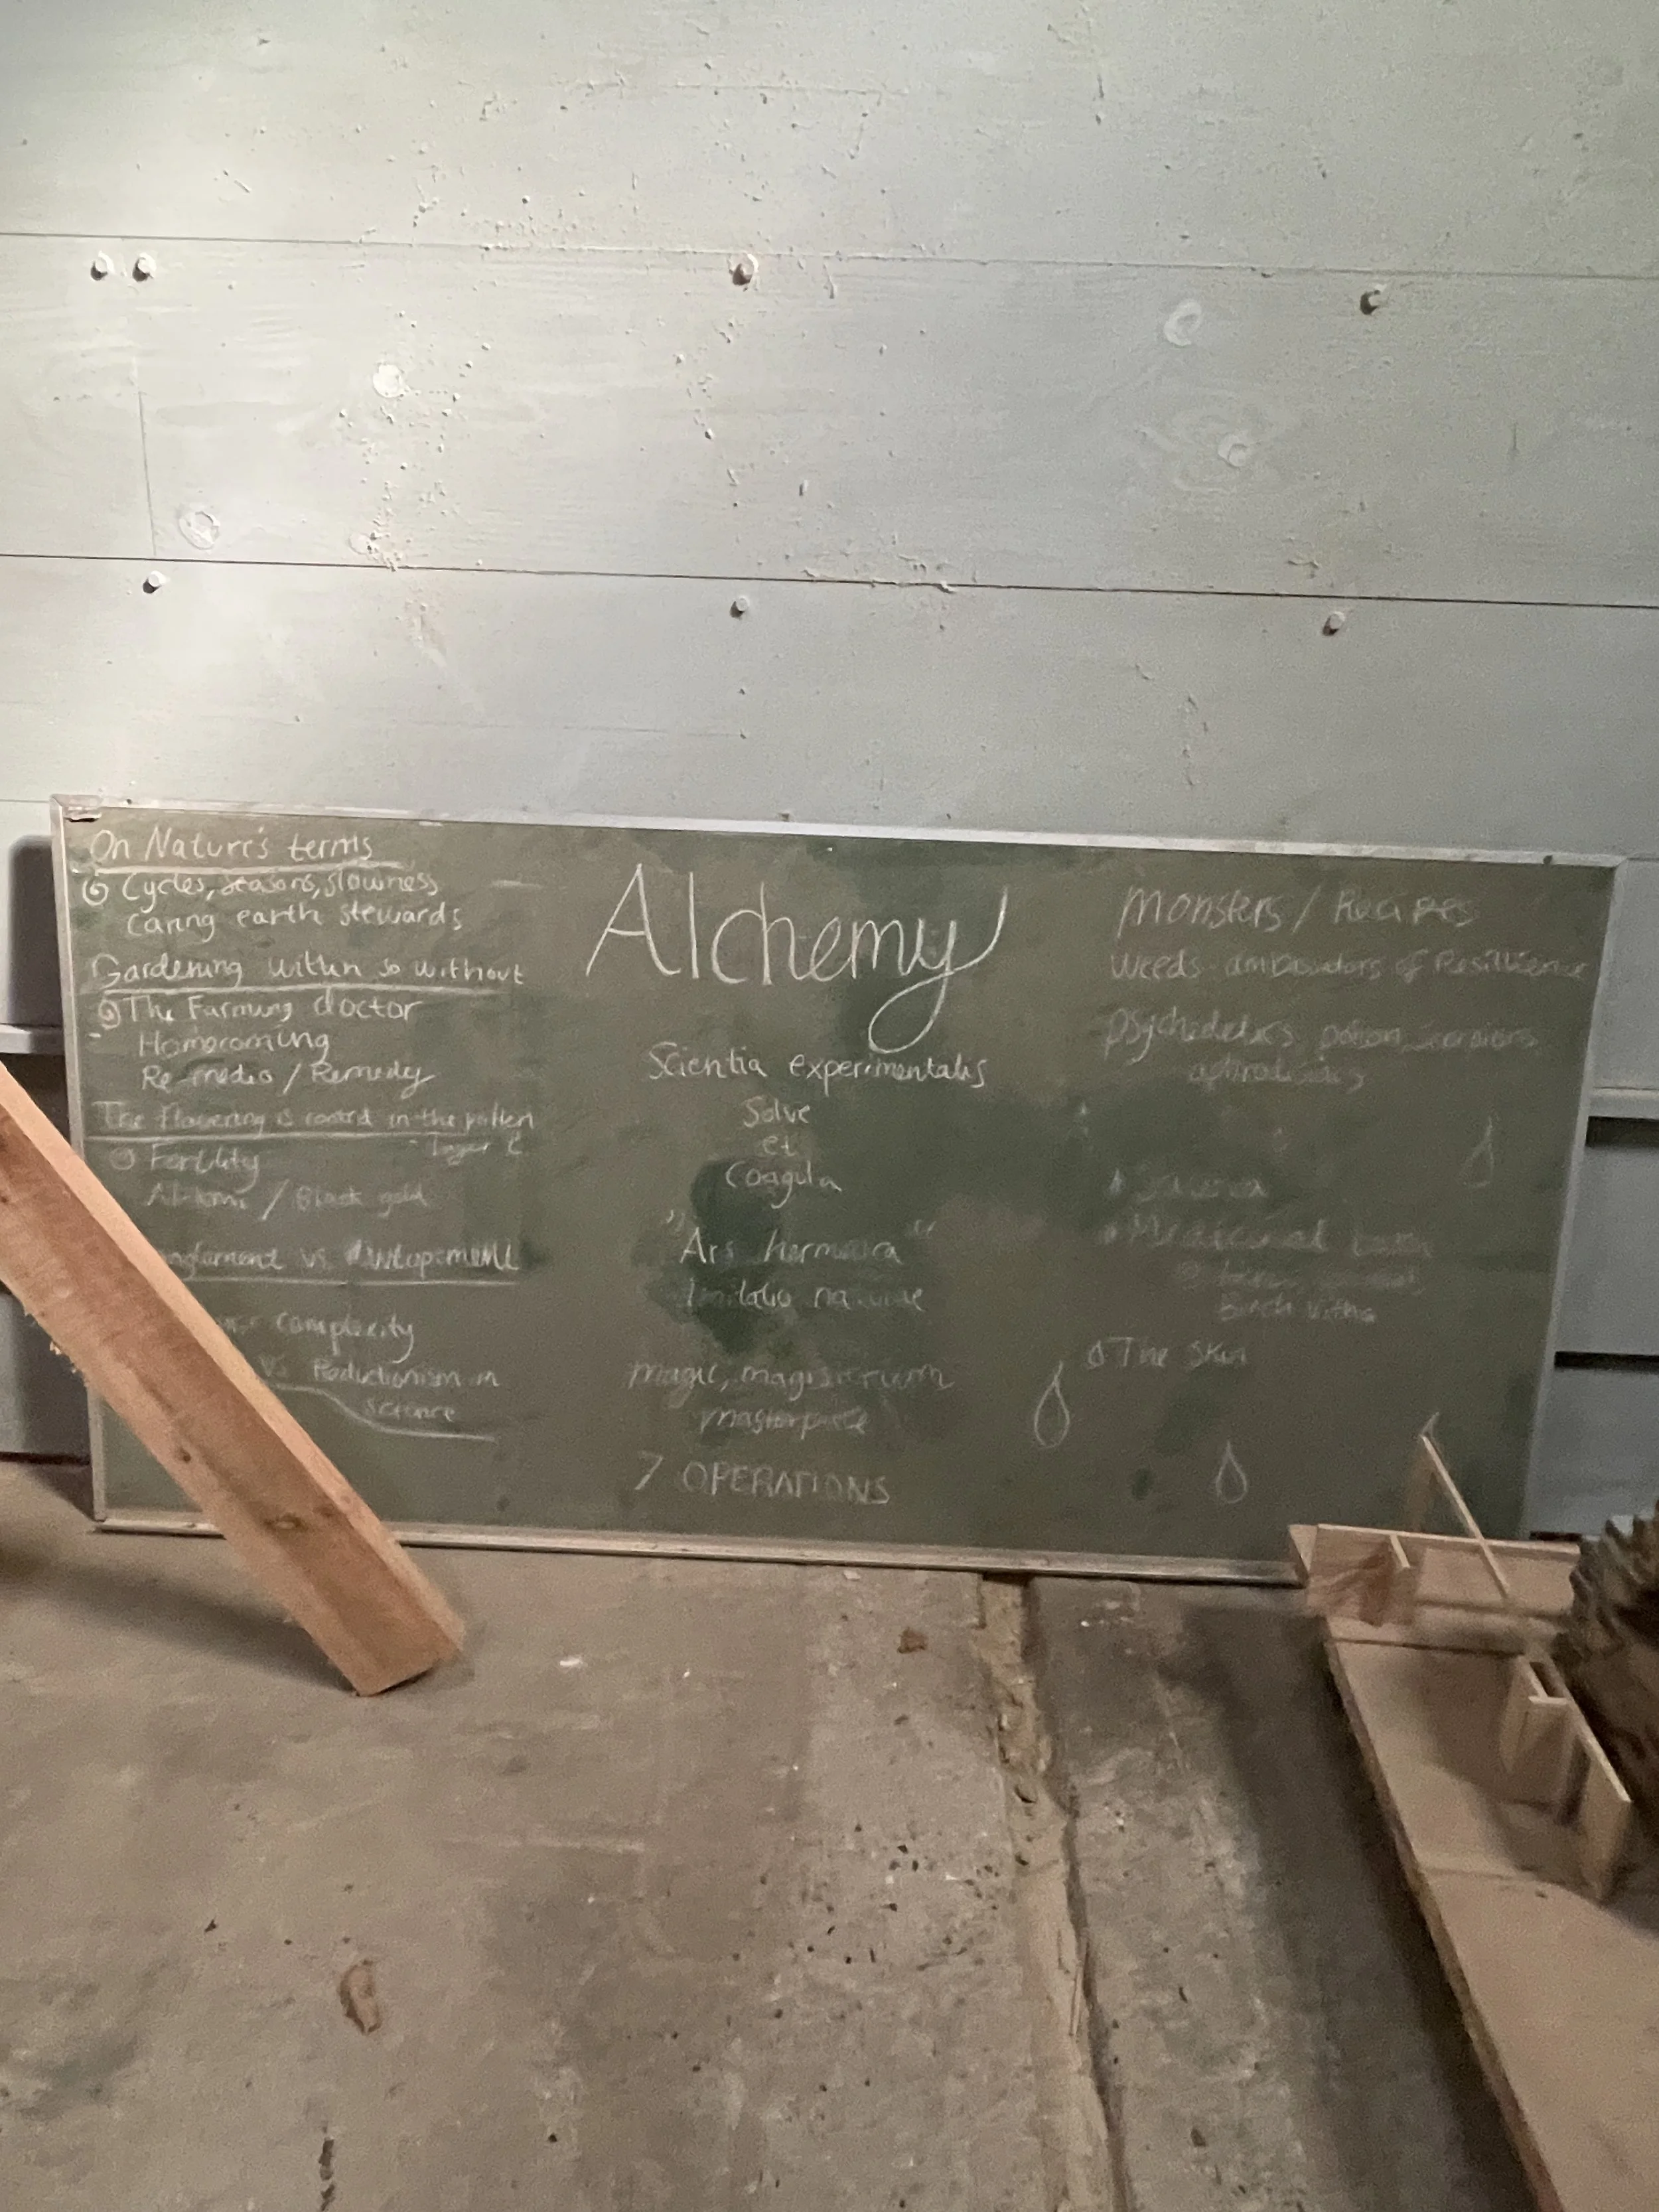 On Nature's terms
Cycles, seasons, slowness
Caring earth stewards
Gardening within so without
The Farming doctor
Homecoming
Re-medio / Remedy
The flowering is in the pollen
Fertility
/ Black gold
vs
complexity
vs Reductionism in
science
Alchemy
Scientia experimentalis
Solve
et
Coagula
"Ars hermetica"
naturae
magic, magisterium
masterpiece
7 OPERATIONS
Monsters / Recipes
Weeds ambassadors of Resillience
psychedelics potion
aphrodisiacs
Medicinal
Birch
The Skin